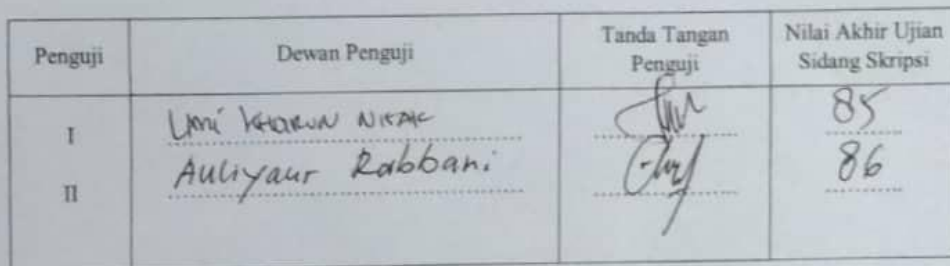 Penguji Dewan Penguji Tanda Tangan Penguji Nilai Akhir Ujian Sidang Skripsi
I Umi 85
II Auliyaur Rabbani 86